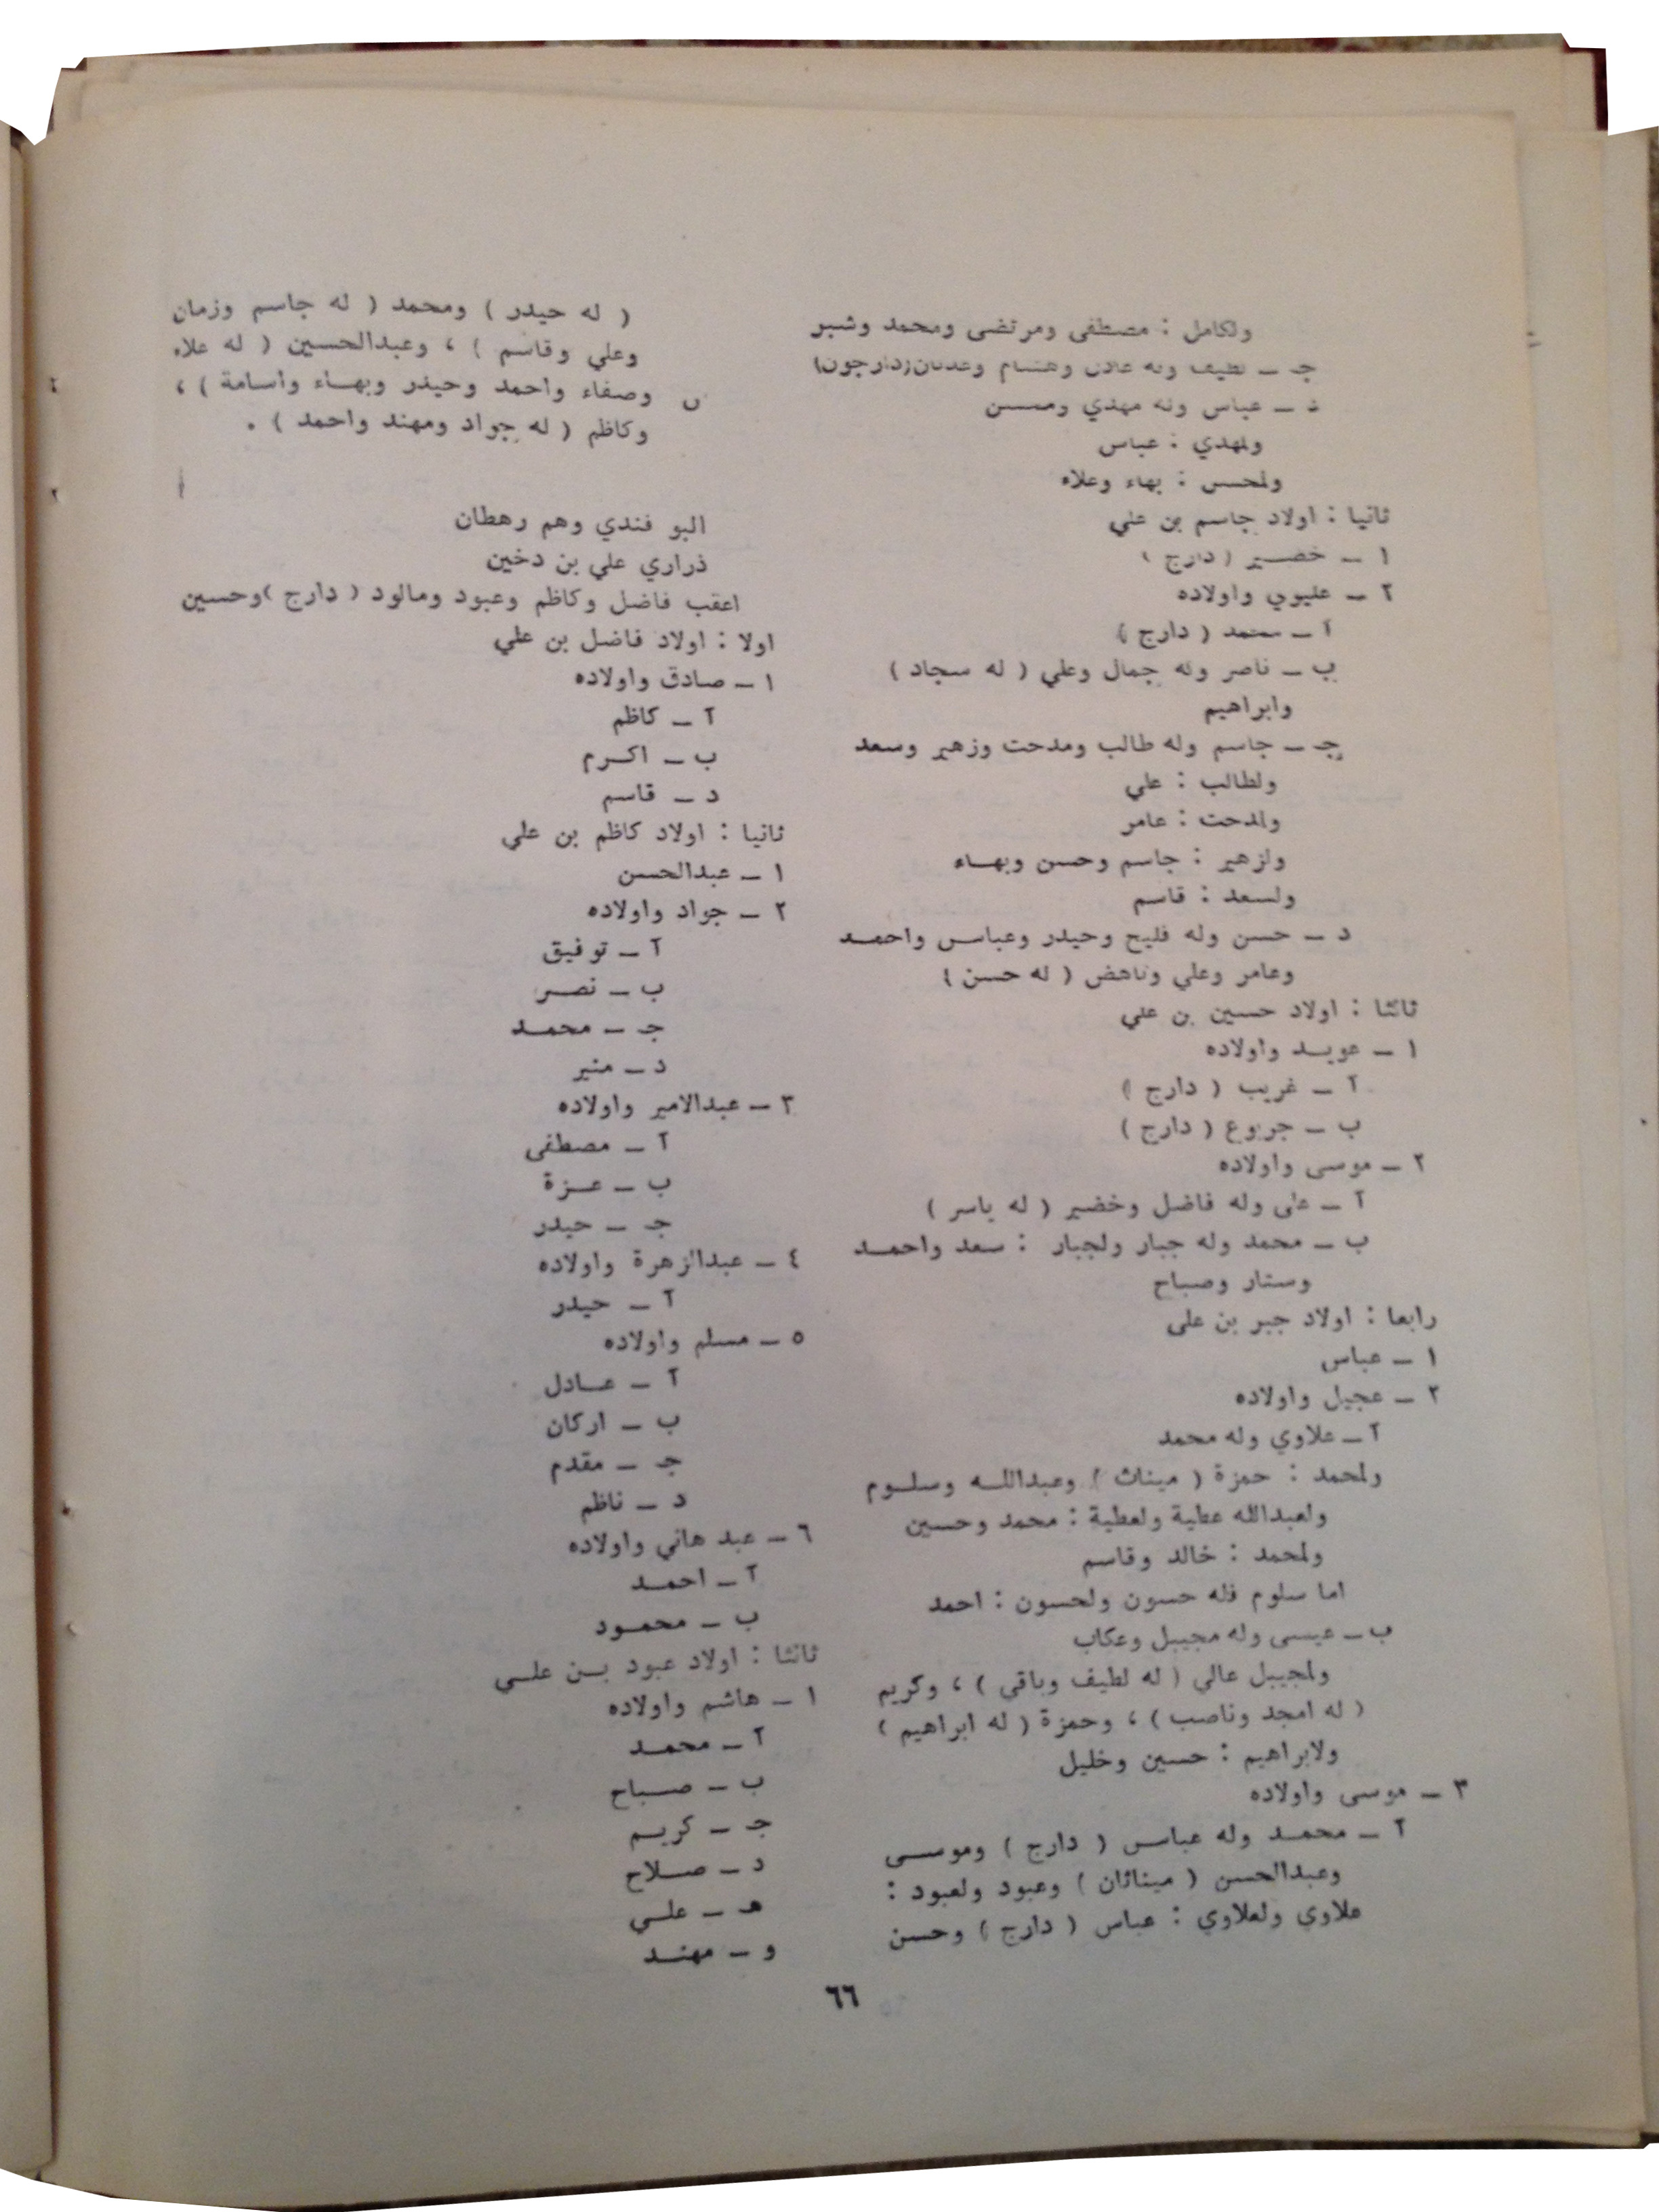 ولكامل : مصطفى ومرتضى ومحمد وشبر
جـ ـ لطيف وله عادل وهشام وعدنان(دارجون)
د ـ عباس وله مهدي ومحسن
ولمهدي : عباس
ولمحسن : بهاء وعلاء
ثانيا : اولاد جاسم بن علي
١ ـ خضير ( دارج )
٢ ـ عليوي واولاده
آ ـ محمد ( دارج )
ب ـ ناصر وله جمال وعلي ( له سجاد )
وابراهيم
جـ ـ جاسم وله طالب ومدحت وزهير وسعد
ولطالب : علي
ولمدحت : عامر
ولزهير : جاسم وحسن وبهاء
ولسعد : قاسم
د ـ حسن وله فليح وحيدر وعباس واحمد
وعامر وعلي وناهض ( له حسن )
ثالثا : اولاد حسين بن علي
١ ـ عويد واولاده
آ ـ غريب ( دارج )
ب ـ جربوع ( دارج )
٢ ـ موسى واولاده
آ ـ على وله فاضل وخضير ( له ياسر )
ب ـ محمد وله جبار ولجبار : سعد واحمد
وستار وصباح
رابعا : اولاد جبر بن على
١ ـ عباس
٢ ـ عجيل واولاده
آ ـ علاوي وله محمد
ولمحمد : حمزة ( ميناث ) وعبدالله وسلوم
ولعبدالله عطية ولعطية : محمد وحسين
ولمحمد : خالد وقاسم
اما سلوم فله حسون ولحسون : احمد
ب ـ عيسى وله مجيبل وعكاب
ولمجيبل عالي ( له لطيف وباقي ) ، وكريم
( له امجد وناصب ) ، وحمزة ( له ابراهيم )
ولابراهيم : حسين وخليل
٣ ـ موسى واولاده
آ ـ محمد وله عباس ( دارج ) وموسى
وعبدالحسن ( ميناثان ) وعبود ولعبود :
علاوي ولعلاوي : عباس ( دارج ) وحسن
( له حيدر ) ومحمد ( له جاسم وزمان
وعلي وقاسم ) ، وعبدالحسين ( له علاء
وصفاء واحمد وحيدر وبهاء واسامة ) ،
وكاظم ( له جواد ومهند واحمد ) .
البو فندي وهم رهطان
ذراري علي بن دخين
اعقب فاضل وكاظم وعبود ومالود ( دارج )وحسين
اولا : اولاد فاضل بن علي
١ ـ صادق واولاده
آ ـ كاظم
ب ـ اكرم
د ـ قاسم
ثانيا : اولاد كاظم بن علي
١ ـ عبدالحسن
٢ ـ جواد واولاده
آ ـ توفيق
ب ـ نصر
جـ ـ محمد
د ـ منير
٣ ـ عبدالامير واولاده
آ ـ مصطفى
ب ـ عزة
جـ ـ حيدر
٤ ـ عبدالزهرة واولاده
آ ـ حيدر
٥ ـ مسلم واولاده
آ ـ عادل
ب ـ اركان
جـ ـ مقدم
د ـ ناظم
٦ ـ عبد هاني واولاده
آ ـ احمد
ب ـ محمود
ثالثا : اولاد عبود بن علي
١ ـ هاشم واولاده
آ ـ محمد
ب ـ صباح
جـ ـ كريم
د ـ صلاح
هـ ـ علي
و ـ مهند
٦٦